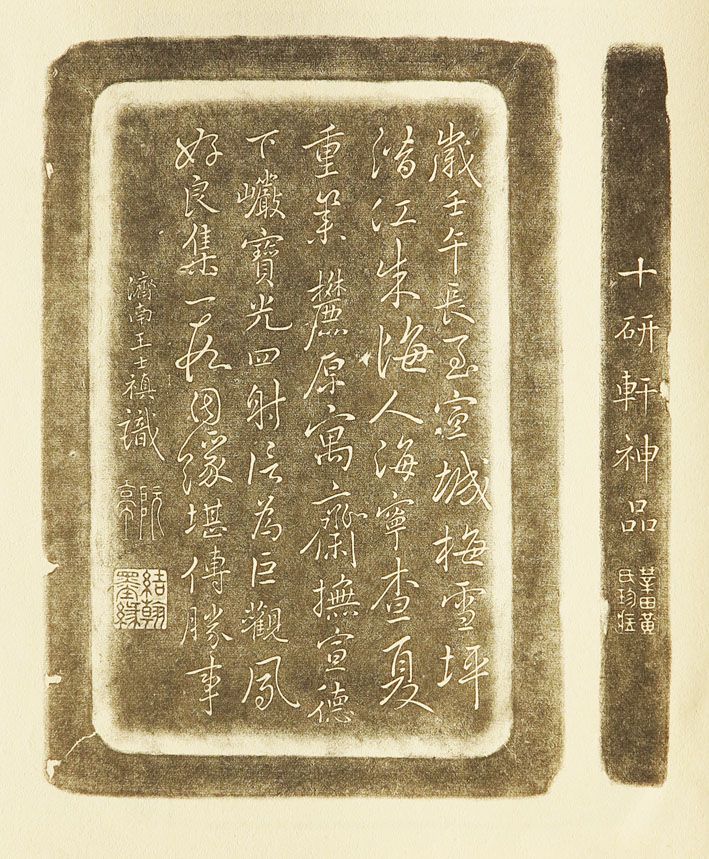 歲壬午長至宣城梅雪坪
潛江朱悔人海寧查夏
重麓原寓齋撫宣德
下巖寶光四射信為巨觀鳳
好良集一段因緣堪傳勝事
濟南王士禎識
阮亭
結翰墨緣
十研軒神品
莘田黃氏珍藏